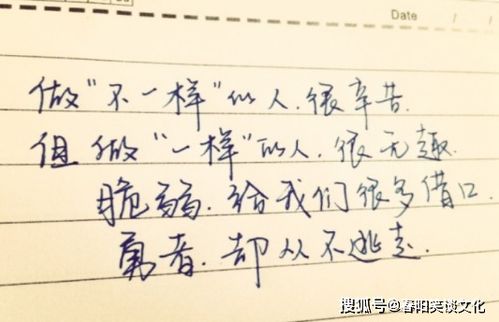 Date / /
做"不一样"的人.很辛苦.
但做"一样"的人.很无趣.
脆弱.给我们很多借口.
勇者.却从不逃走.
搜狐号@春阳笑谈文化